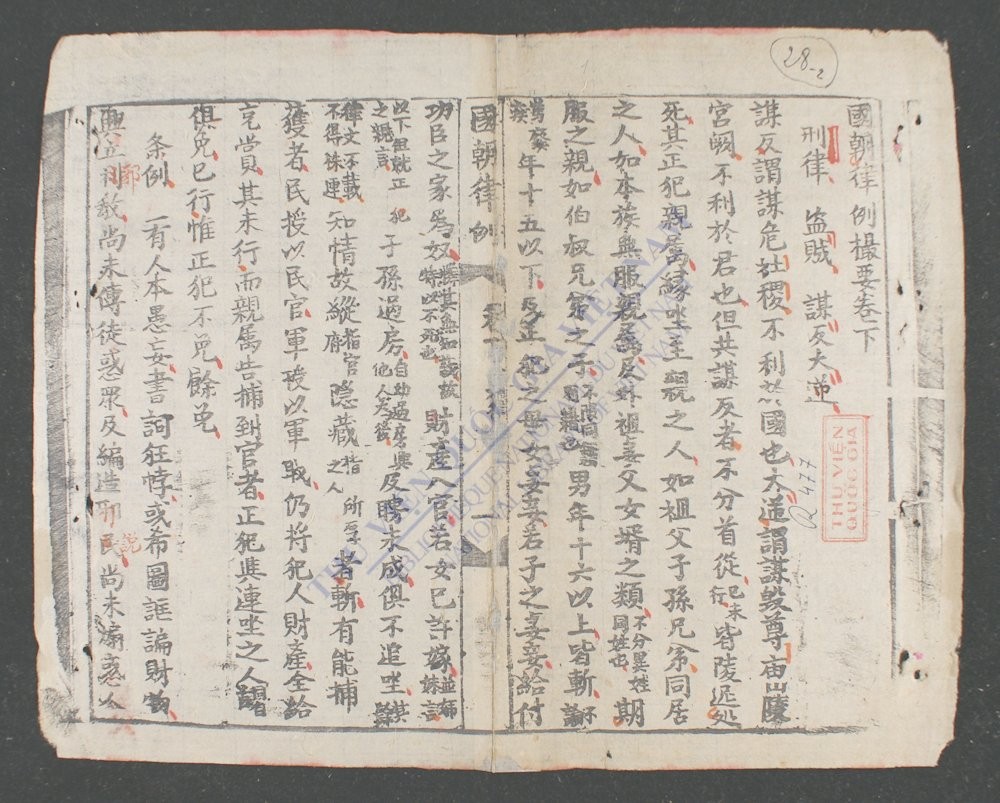 國朝律例撮要卷下
刑律　盜賊　謀反大逆
謀反謂謀危社稷不利於國也大逆謂謀毀尊庙山陵
宮闕不利於君也但共謀反者不分首從已未行皆陵迟处
死其正犯親属緣坐至親之人如祖父子孫兄弟同居
之人如本族無服親属及外祖妻父女壻之類不分異姓同姓也期
服之親如伯叔兄弟之子不限籍之同異也男年十六以上皆斬不論
篤疾廢疾年十五以下及正犯之母女妻妾若子之妻妾給付
國朝律例
功臣之家爲奴財產入官若女已許嫁
子孫過房及聘未成俱不追坐
律文不載不得株連知情故縱指官府隱藏指所犯之人者斬有能捕
獲者民授以民官軍授以軍職仍將犯人財產全給
充賞其未行而親属告捕到官者正犯與連坐之人
俱免已行惟正犯不免餘免
条例　一有人本愚妄書詞狂悖或希圖誆騙財物
興立邪教尚未傳徒惑眾及編造邪說尚未煽惑人
28-2
R 477
THƯ VIỆN
QUỐC GIA
THƯ VIỆN QUỐC GIA VIỆT NAM